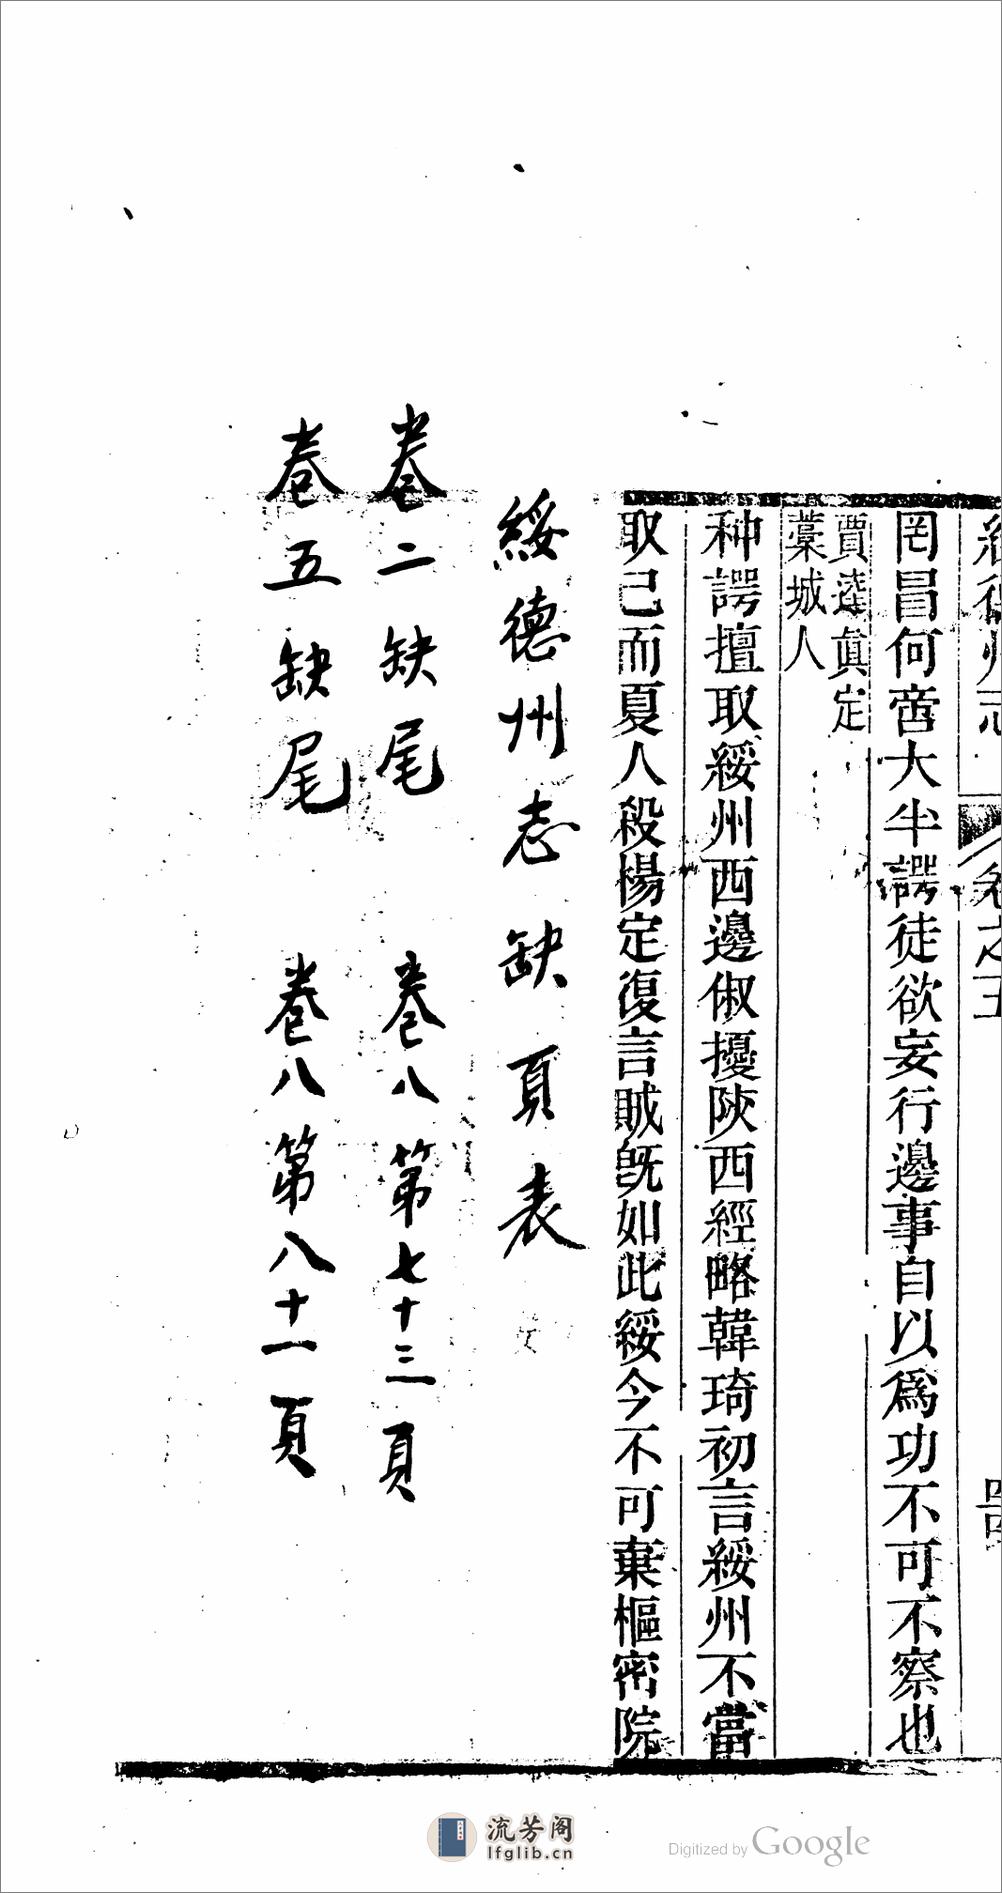 綏德州志 卷之五
罔冒何啻大半諤徒欲妄行邊事自以爲功不可不察也
賈逵真定
藁城人
种諤擅取綏州西邊俶擾陝西經略韓琦初言綏州不當
取已而夏人殺楊定復言賊旣如此綏今不可棄樞密院
綏德州志缺頁表
卷二缺尾 卷八第七十三頁
卷五缺尾 卷八第八十一頁
流芳阁
lfglib.cn
Digitized by Google